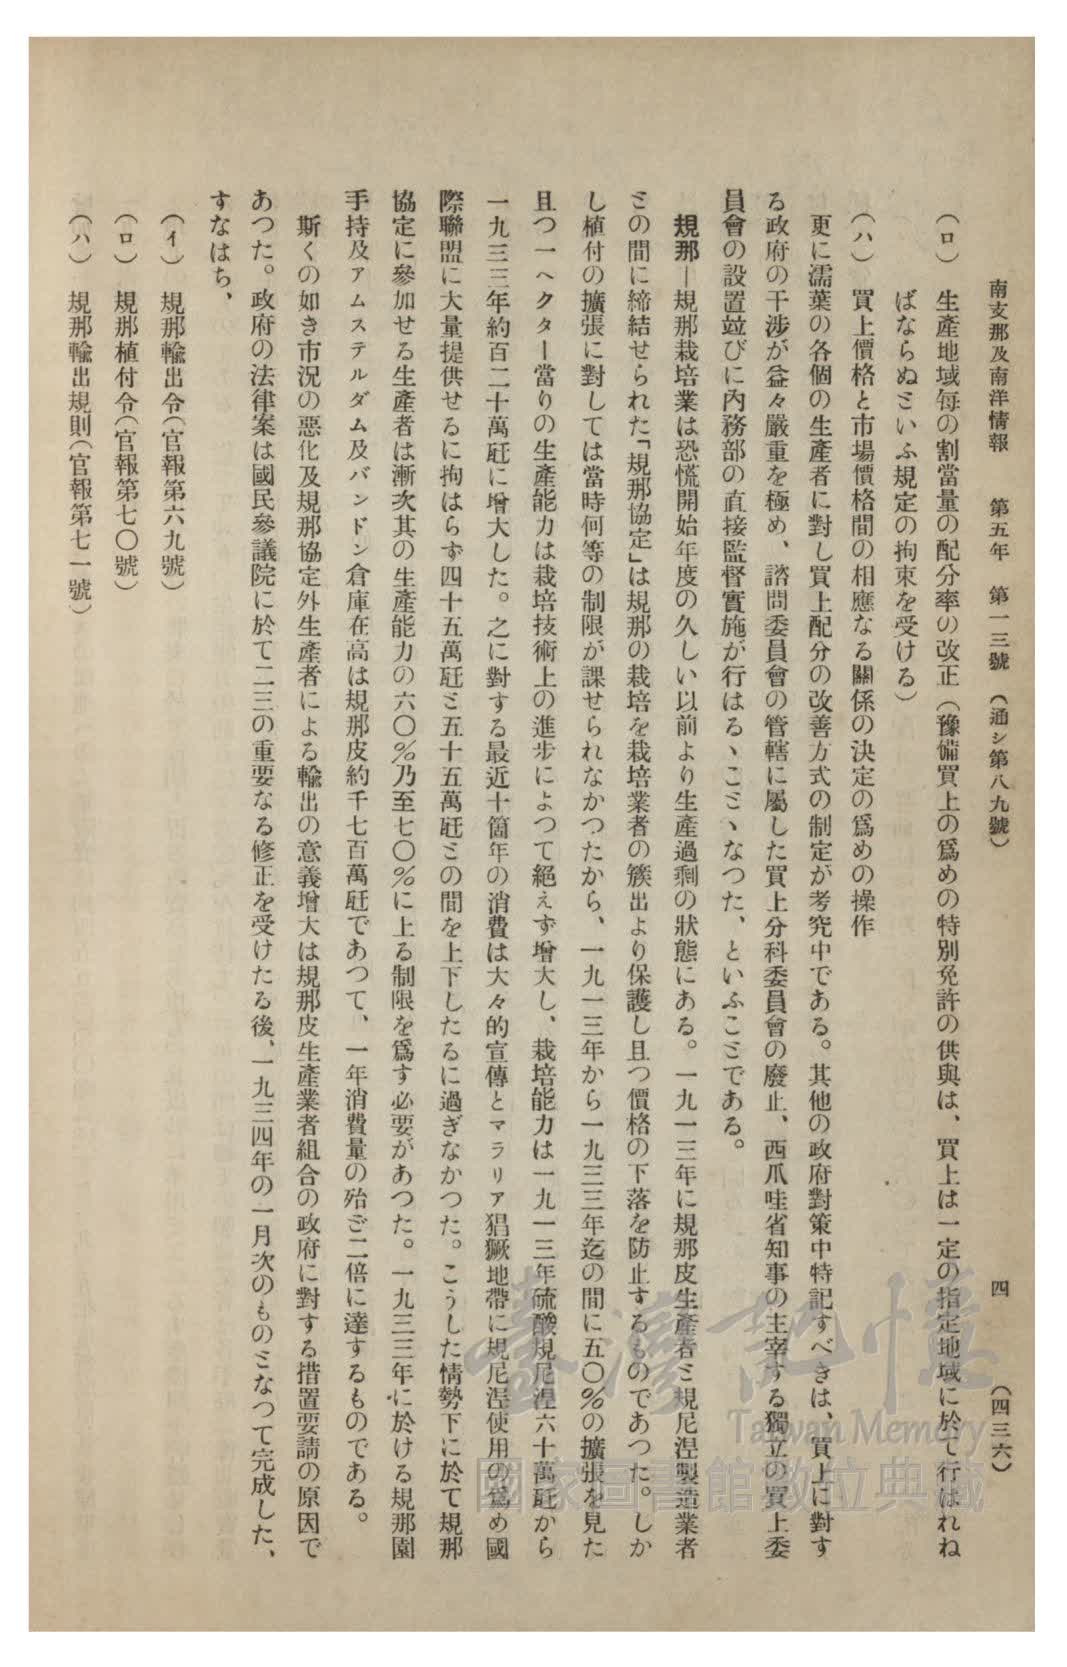 南支那及南洋情報　第五年　第一三號　（通シ第八九號）　四　（四三六）
（ロ）　生產地域每の割當量の配分率の改正（豫備買上の爲めの特別免許の供與は、買上は一定の指定地域に於て行はれね
ばならぬといふ規定の拘束を受ける）
（ハ）　買上價格と市場價格間の相應なる關係の決定の爲めの操作
更に濡葉の各個の生產者に對し買上配分の改善方式の制定が考究中である。其他の政府對策中特記すべきは、買上に對す
る政府の干涉が益々嚴重を極め、諮問委員會の管轄に屬した買上分科委員會の廢止、西爪哇省知事の主宰する獨立の買上委
員會の設置竝びに內務部の直接監督實施が行はるゝことゝなつた、といふことである。
規那―規那栽培業は恐慌開始年度の久しい以前より生產過剩の狀態にある。一九一三年に規那皮生產者と規尼涅製造業者
との間に締結せられた「規那協定」は規那の栽培を栽培業者の簇出より保護し且つ價格の下落を防止するものであつた。しか
し植付の擴張に對しては當時何等の制限が課せられなかつたから、一九一三年から一九三三年迄の間に五〇％の擴張を見た
且つ一ヘクター當りの生產能力は栽培技術上の進步によつて絕えず增大し、栽培能力は一九一三年硫酸規尼涅六十萬瓩から
一九三三年約百二十萬瓩に增大した。之に對する最近十箇年の消費は大々的宣傳とマラリア猖獗地帶に規尼涅使用の爲め國
際聯盟に大量提供せるに拘はらず四十五萬瓩と五十五萬瓩との間を上下したるに過ぎなかつた。こうした情勢下に於て規那
協定に參加せる生產者は漸次其の生產能力の六〇％乃至七〇％に上る制限を爲す必要があつた。一九三三年に於ける規那園
手持及アムステルダム及バンドン倉庫在高は規那皮約千七百萬瓩であつて、一年消費量の殆ど二倍に達するものである。
斯くの如き市況の惡化及規那協定外生產者による輸出の意義增大は規那皮生產業者組合の政府に對する措置要請の原因で
あつた。政府の法律案は國民參議院に於て二三の重要なる修正を受けたる後、一九三四年の一月次のものとなつて完成した、
すなはち、
（イ）　規那輸出令（官報第六九號）
（ロ）　規那植付令（官報第七〇號）
（ハ）　規那輸出規則（官報第七一號）
臺灣記憶
Taiwan Memory
國家圖書館數位典藏